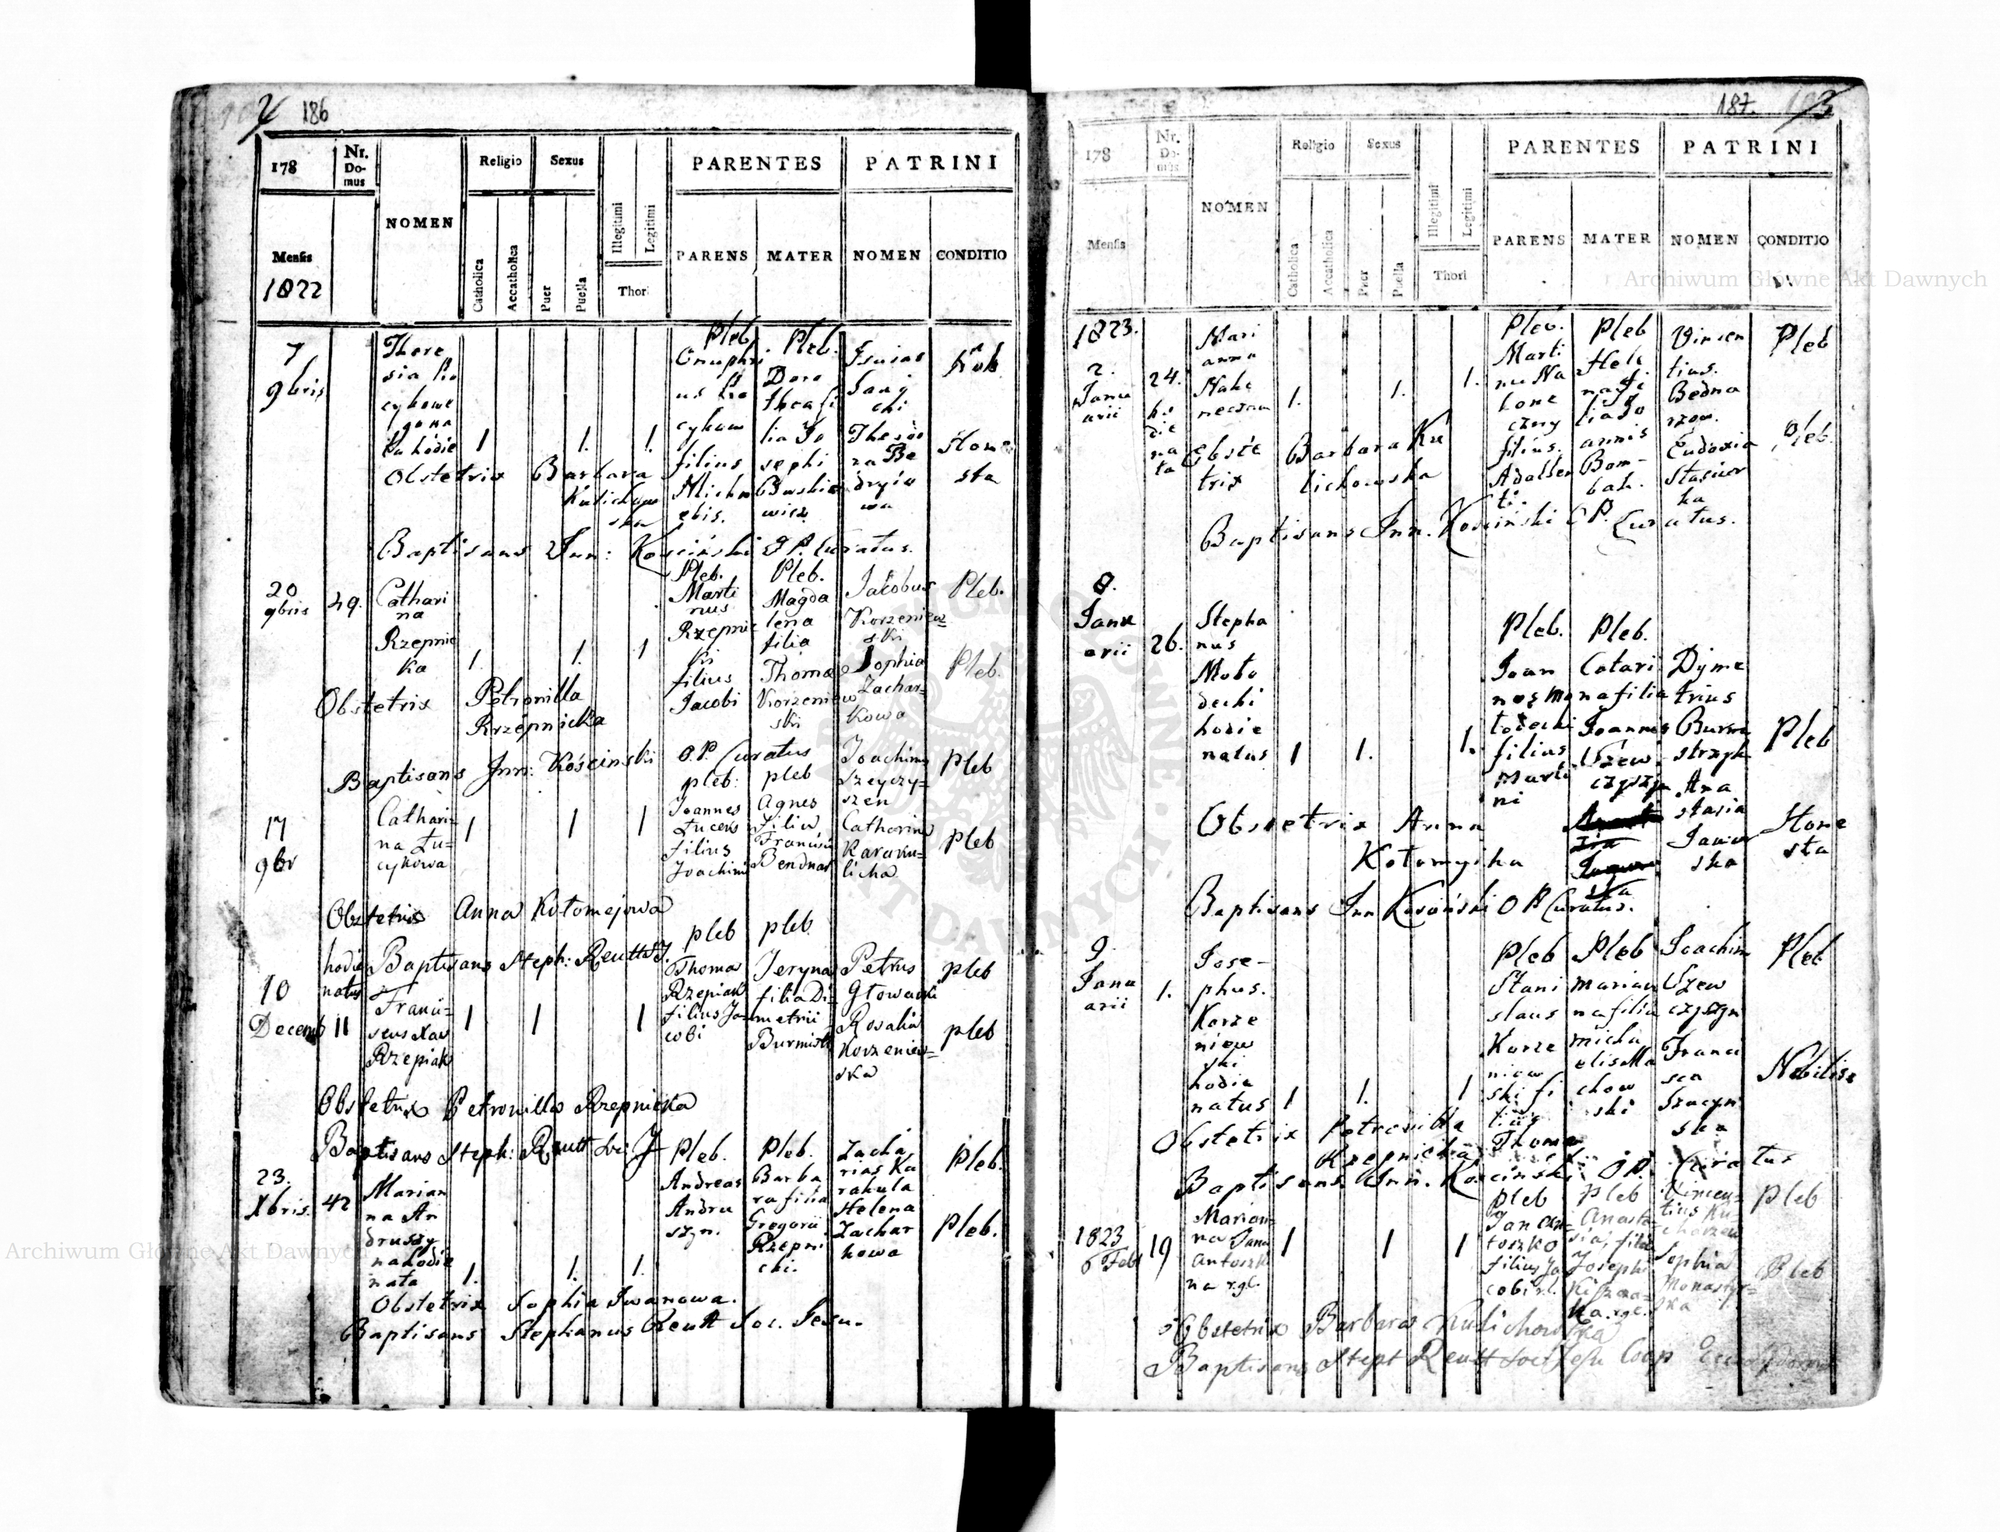 186
178
Nr. Do- mus
NOMEN
Religio
Sexus
PARENTES
PATRINI
Mensis
1822
Catholica
Accatholica
Puer
Puella
Illegitimi
Legitimi
Thori
PARENS
MATER
NOMEN
CONDITIO
7
9bris
There
sia
cykowe
hodie
1
1.
1.
Pleb.
Onuphri
us
cykow
filius
Micha
Pleb.
Doro
thea fi
lia Jo
sephi
wicz
Isaias
Theodo
wa
Hone
sta
Obstetrix Barbara
Kulichow
ska
Baptisans Inn: Kościński O. P. Curatus.
20
9bris
29.
Cathari
na
Rzepnic
ka
1.
1.
1
Pleb.
Marti
nus
Rzepnic
ki
filius
Jacobi
Pleb.
Magda
lena
filia
Thoma
Korzeniow
ski
Jakobus
Korzeniew
ski
Sophia
Zachar-
kowa
Pleb.
Pleb.
Obstetrix Petronilla
Rzepnicka
Baptisans Inn: Kościnski O.P. Curatus
17
9br
Cathari-
na Łu-
cykowa
1
1
1
pleb:
Joannes
Łucek
filius
Joachimi
pleb
Agnes
filia
Francisci
Bendnar
Joachim
Szeyczy-
szen
Catharina
Karaku-
licha
Pleb
Pleb
Obstetrix Anna Kołomejowa
hodie
natus
Baptisans Steph: Reutt S.J.
10
Decemb
11
Franci-
scus Xav
Rzepiak
1
1
1
pleb
Thoma
Rzepiak
filius Ja-
cobi
pleb
Jeryna
filia Di-
metrii
Burmist
Petrus
Głowacki
Rosalia
Korzeniew-
ska
pleb
pleb
Obstetrix Petronilla Rzepnicka
Baptisans Steph: Reutt Soc: J
23.
Xbris.
42
Marian
na An
druszy
na hodie
nata
1.
1.
1.
Pleb.
Andreas
Andru
szyn.
Pleb.
Barba
ra filia
Gregorii
Rzepni
cki.
Zacha
rias Ka
rakula
Helena
Zachar
kowa
Pleb.
Pleb.
Obstetrix Sophia Iwanowa.
Baptisans Stephanus Reutt Soc. Jesu.
187.
178
Nr. Do- mus
NOMEN
Religio
Sexus
PARENTES
PATRINI
Mensis
Catholica
Accatholica
Puer
Puella
Illegitimi
Legitimi
Thori
PARENS
MATER
NOMEN
CONDITIO
1823.
2.
Janu
arii
24.
ho
die
na
ta
Mari
anna
Nako
neczna
1.
1.
1.
Pleb.
Marti
nus Na
kone
czny
filius
Adalber
ti.
Pleb
Hele
na fi
lia Jo
annis
Bom-
bak.
Vincen
tius.
Bedna
rzow.
Eudoxia
Stasiow
ka
Pleb
Pleb.
Obste
trix
Barbara Ku
lichowska
Baptisans Inn. Kościnski O P. Curatus.
8.
Janu
arii
26.
Stepha
nus
Moto
decki
hodie
natus
1
1.
1.
Pleb.
Joan
nes Mo
todecki
filius
Marti
ni
Pleb.
Catari
na filia
Joannis
Szew
czyszyn
Dyme
trius
Burmi
strzyk
Ana
stasia
Janow
ska
Pleb
Hone
sta
Obstetrix Anna
Kołomyika
Baptisans Inn Kosciński O P Curatus.
9.
Janu
arii
1.
Jose-
phus.
Korze
niow
ski
hodie
natus
1
1.
1
Pleb
Stani
slaus
Korze
niow
ski fi
lius
Thoma
Pleb
Marian
na filia
Micha
elis Ma
chow
ski
Joachim
Szew
czyszyn
Franci
sca
Szaczyn
ska
Pleb
Nobiliss
Obstetrix Petronilla
Rzepnicka
Baptisans. Inn. Kościnski O.P. Curatus
1823
6 Feb
19
Marian-
na Jana
Antoszk
na rgl.
1
1
1
pleb
Jan An-
toszko
filius Ja
cobi rl.
pleb
Anasta-
sia, filia
Josephi
ka. rgl.
Vincen-
tius Ku-
Sophia
Monastyr-
ska
pleb
Pleb
Obstetrix Barbara Kulichowska
Baptisans Steph Reutt Soc Jesu Coop
Archiwum Główne Akt Dawnych
Archiwum Główne Akt Dawnych